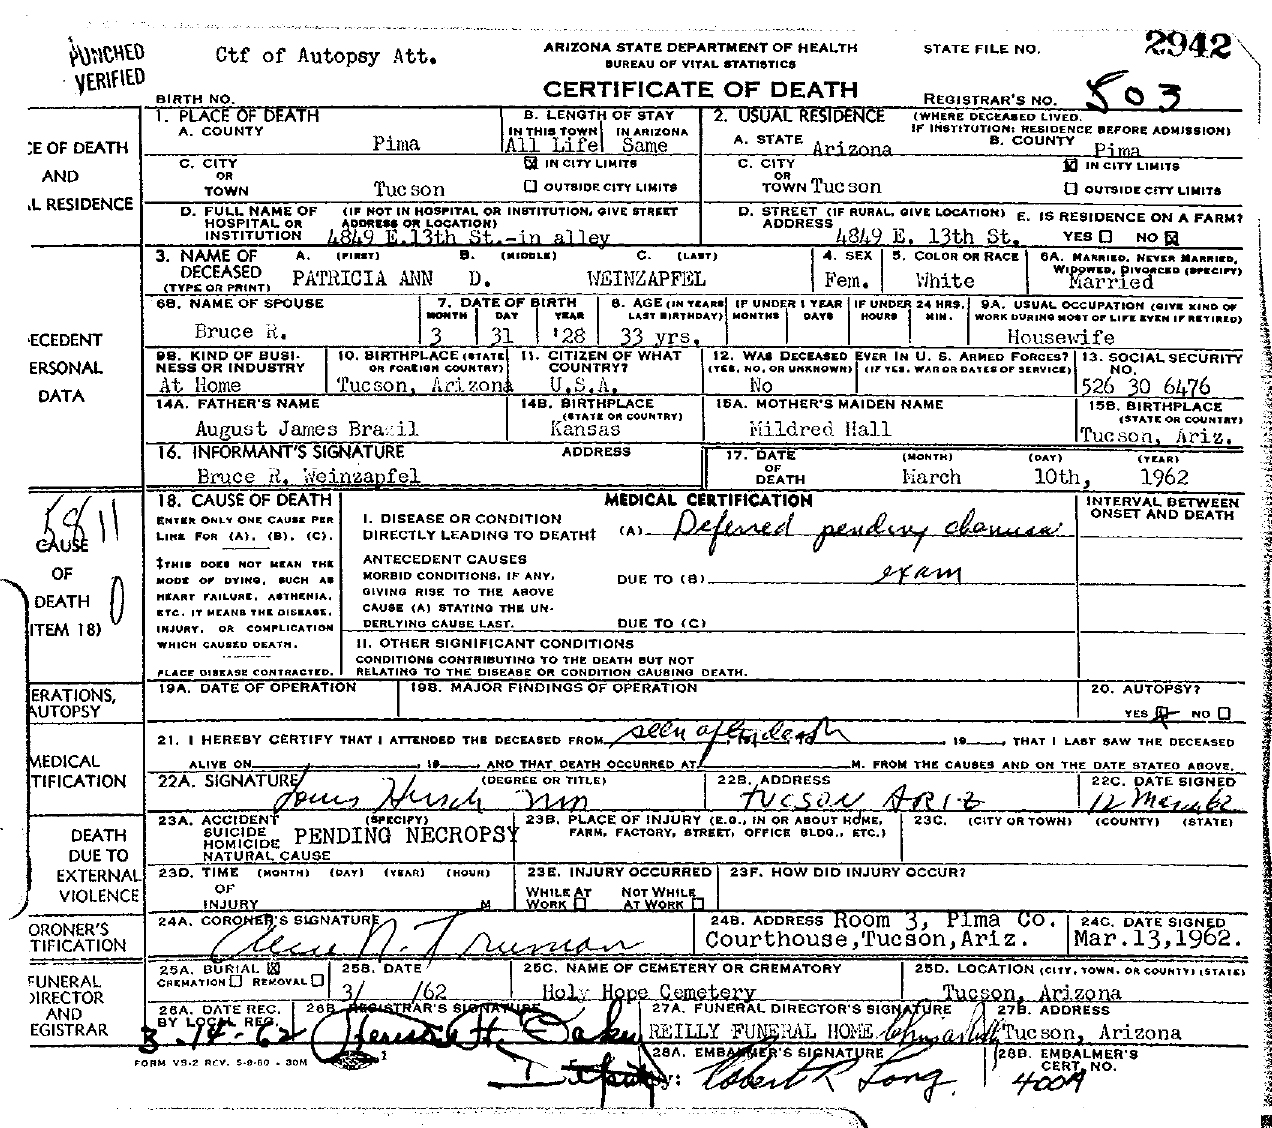 PUNCHED
VERIFIED
Ctf of Autopsy Att.
ARIZONA STATE DEPARTMENT OF HEALTH
BUREAU OF VITAL STATISTICS
CERTIFICATE OF DEATH
STATE FILE NO. 2942
BIRTH NO.
REGISTRAR'S NO. 503
CE OF DEATH
AND
L RESIDENCE
1. PLACE OF DEATH
A. COUNTY
Pima
B. LENGTH OF STAY
IN THIS TOWN IN ARIZONA
All Life Same
2. USUAL RESIDENCE (WHERE DECEASED LIVED.
IF INSTITUTION: RESIDENCE BEFORE ADMISSION)
A. STATE Arizona
B. COUNTY Pima
C. CITY
OR
TOWN Tucson
☒ IN CITY LIMITS
☐ OUTSIDE CITY LIMITS
C. CITY
OR
TOWN Tucson
☒ IN CITY LIMITS
☐ OUTSIDE CITY LIMITS
D. FULL NAME OF (IF NOT IN HOSPITAL OR INSTITUTION, GIVE STREET
HOSPITAL OR ADDRESS OR LOCATION)
INSTITUTION 4849 E.13th St.-in alley
D. STREET (IF RURAL, GIVE LOCATION)
ADDRESS 4849 E. 13th St.
E. IS RESIDENCE ON A FARM?
YES ☐ NO ☒
ECEDENT
ERSONAL
DATA
3. NAME OF
DECEASED
(TYPE OR PRINT)
A. (FIRST) B. (MIDDLE) C. (LAST)
PATRICIA ANN D. WEINZAPFEL
4. SEX
Fem.
5. COLOR OR RACE
White
6A. MARRIED, NEVER MARRIED,
WIDOWED, DIVORCED (SPECIFY)
Married
6B. NAME OF SPOUSE
Bruce R.
7. DATE OF BIRTH
MONTH DAY YEAR
3 31 '28
8. AGE (IN YEARS
LAST BIRTHDAY)
33 yrs.
IF UNDER 1 YEAR
MONTHS DAYS
IF UNDER 24 HRS.
HOURS MIN.
9A. USUAL OCCUPATION (GIVE KIND OF
WORK DURING MOST OF LIFE EVEN IF RETIRED)
Housewife
9B. KIND OF BUSI-
NESS OR INDUSTRY
At Home
10. BIRTHPLACE (STATE
OR FOREIGN COUNTRY)
Tucson, Arizona
11. CITIZEN OF WHAT
COUNTRY?
U.S.A.
12. WAS DECEASED EVER IN U. S. ARMED FORCES?
(YES, NO, OR UNKNOWN) (IF YES, WAR OR DATES OF SERVICE)
No
13. SOCIAL SECURITY
NO.
526 30 6476
14A. FATHER'S NAME
August James Brazil
14B. BIRTHPLACE
(STATE OR COUNTRY)
Kansas
15A. MOTHER'S MAIDEN NAME
Mildred Hall
15B. BIRTHPLACE
(STATE OR COUNTRY)
Tucson, Ariz.
16. INFORMANT'S SIGNATURE ADDRESS
Bruce R. Weinzapfel
17. DATE
OF
DEATH
(MONTH) (DAY) (YEAR)
March 10th, 1962
5811
CAUSE
OF
DEATH 0
ITEM 18)
18. CAUSE OF DEATH
ENTER ONLY ONE CAUSE PER
LINE FOR (A), (B), (C).
‡THIS DOES NOT MEAN THE
MODE OF DYING, SUCH AS
HEART FAILURE, ASTHENIA,
ETC. IT MEANS THE DISEASE,
INJURY, OR COMPLICATION
WHICH CAUSED DEATH.
PLACE DISEASE CONTRACTED.
MEDICAL CERTIFICATION
I. DISEASE OR CONDITION
DIRECTLY LEADING TO DEATH‡
(A) Deferred pending
ANTECEDENT CAUSES
MORBID CONDITIONS, IF ANY,
GIVING RISE TO THE ABOVE
CAUSE (A) STATING THE UN-
DERLYING CAUSE LAST.
DUE TO (B) exam
DUE TO (C)
II. OTHER SIGNIFICANT CONDITIONS
CONDITIONS CONTRIBUTING TO THE DEATH BUT NOT
RELATING TO THE DISEASE OR CONDITION CAUSING DEATH.
INTERVAL BETWEEN
ONSET AND DEATH
ERATIONS,
AUTOPSY
19A. DATE OF OPERATION
19B. MAJOR FINDINGS OF OPERATION
20. AUTOPSY?
YES ☒ NO ☐
MEDICAL
TIFICATION
21. I HEREBY CERTIFY THAT I ATTENDED THE DECEASED FROM seen after death 19 , THAT I LAST SAW THE DECEASED
ALIVE ON 19 AND THAT DEATH OCCURRED AT M. FROM THE CAUSES AND ON THE DATE STATED ABOVE.
22A. SIGNATURE (DEGREE OR TITLE)
Louis Hirsch MD
22B. ADDRESS
TUCSON ARIZ
22C. DATE SIGNED
12 Mar 62
DEATH
DUE TO
EXTERNAL
VIOLENCE
23A. ACCIDENT (SPECIFY)
SUICIDE
HOMICIDE
NATURAL CAUSE
PENDING NECROPSY
23B. PLACE OF INJURY (E.G., IN OR ABOUT HOME,
FARM, FACTORY, STREET, OFFICE BLDG., ETC.)
23C. (CITY OR TOWN) (COUNTY) (STATE)
23D. TIME (MONTH) (DAY) (YEAR) (HOUR)
OF
INJURY M
23E. INJURY OCCURRED
WHILE AT NOT WHILE
WORK ☐ AT WORK ☐
23F. HOW DID INJURY OCCUR?
ORONER'S
TIFICATION
24A. CORONER'S SIGNATURE
N. Truman
24B. ADDRESS Room 3, Pima Co.
Courthouse,Tucson,Ariz.
24C. DATE SIGNED
Mar.13,1962.
FUNERAL
DIRECTOR
AND
EGISTRAR
25A. BURIAL ☒
CREMATION ☐ REMOVAL ☐
25B. DATE
3/ /62
25C. NAME OF CEMETERY OR CREMATORY
Holy Hope Cemetery
25D. LOCATION (CITY, TOWN, OR COUNTY) (STATE)
Tucson, Arizona
26A. DATE REC.
BY LOCAL REG.
3-14-62
26B. REGISTRAR'S SIGNATURE
Deputy:
27A. FUNERAL DIRECTOR'S SIGNATURE
REILLY FUNERAL HOME
27B. ADDRESS
Tucson, Arizona
28A. EMBALMER'S SIGNATURE
Robert R Long
28B. EMBALMER'S
CERT. NO.
400A
FORM VS-2 REV. 5-9-60 - 30M